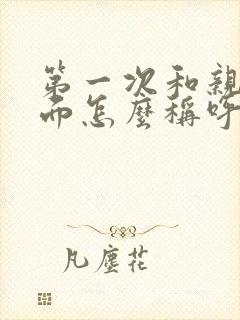 第一次和親
而怎麼稱呼
凡塵花